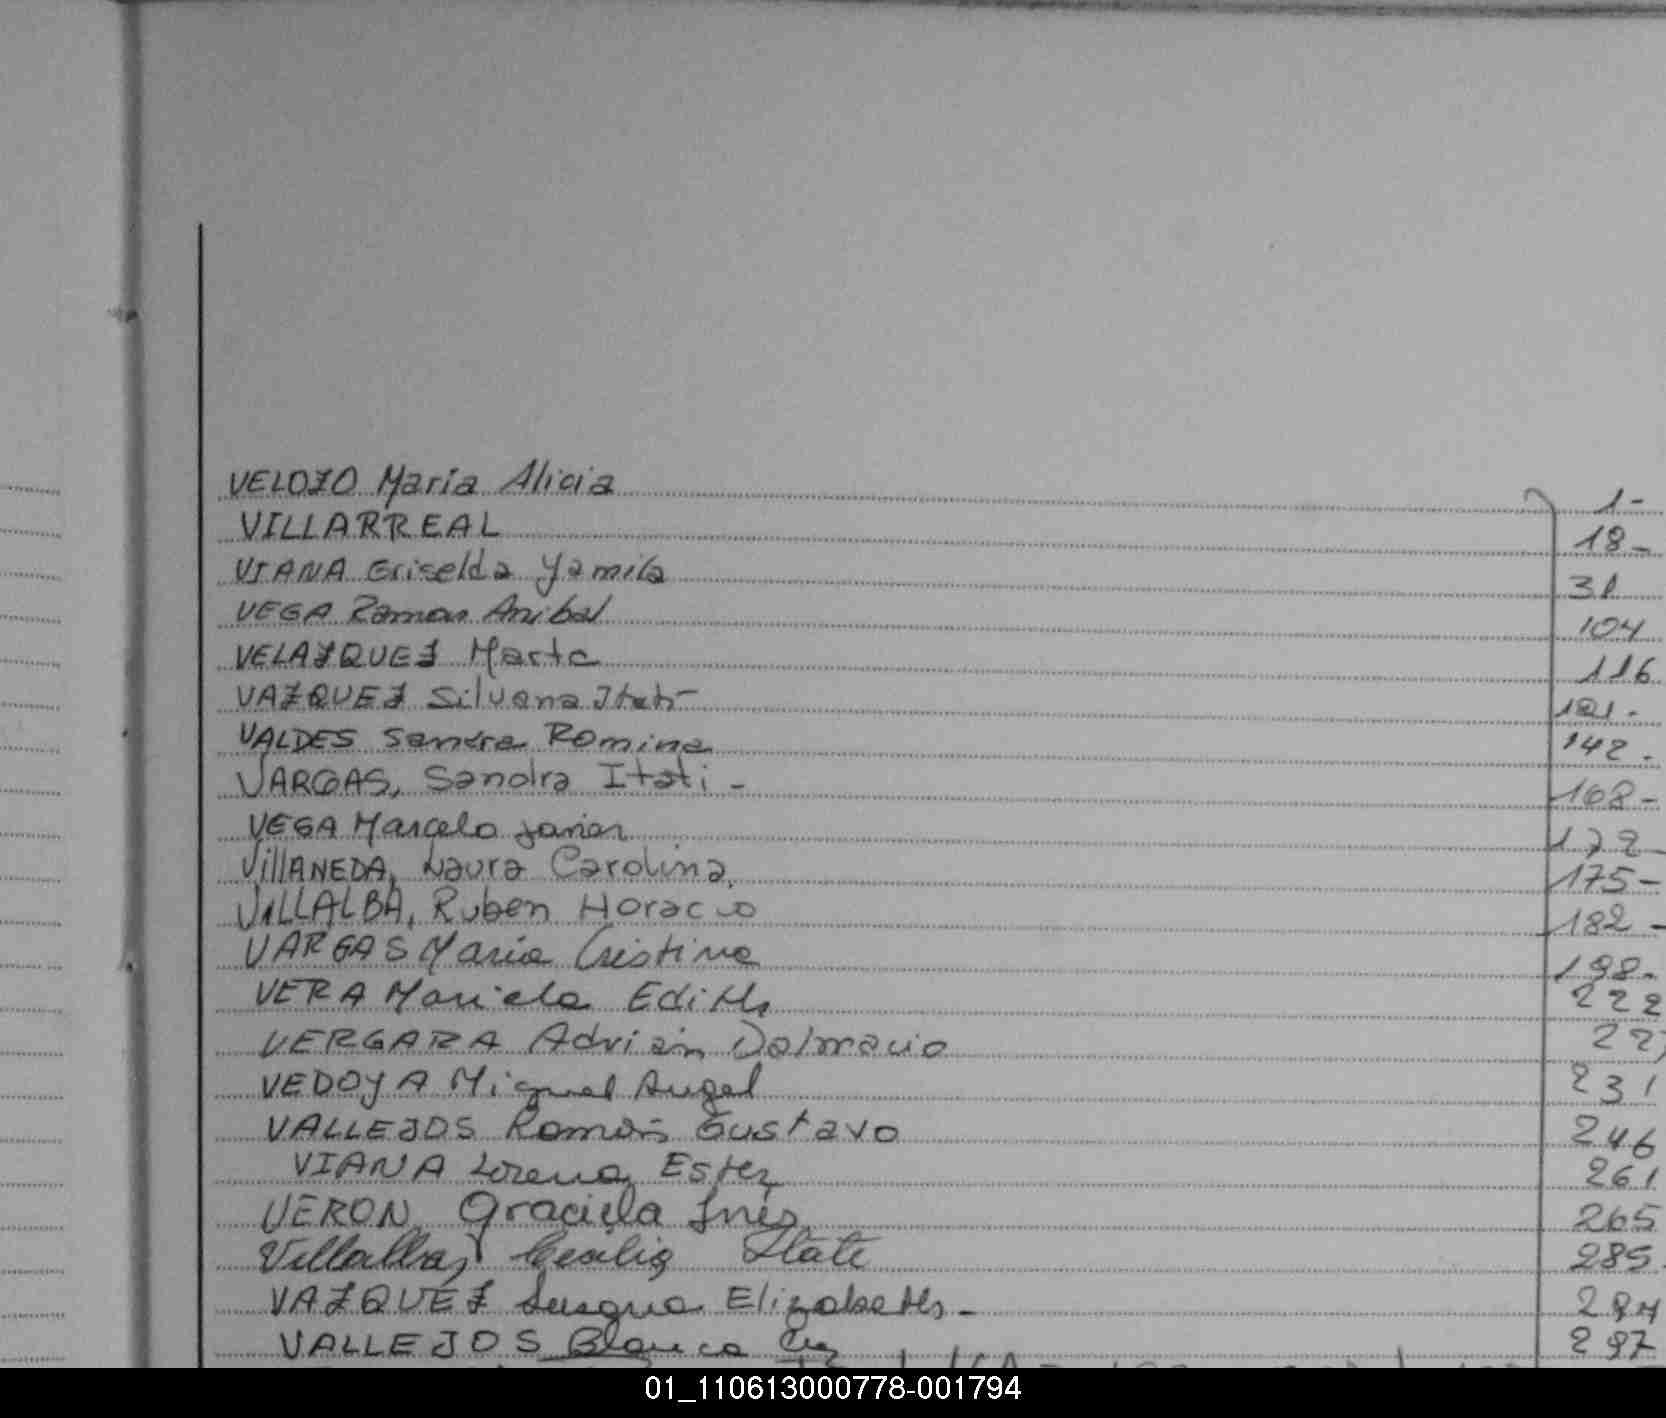 VELOZO Maria Alicia 1-
VILLARREAL 18-
VIANA Griselda Yamila 31
VEGA Ramon Anibal 104
VELAZQUEZ Marta 116
VAZQUEZ Silvana Itati- 121-
VALDES Sandra Romina 142-
VARGAS, Sandra Itati - 168-
VEGA Marcelo Javier 172-
VillANEDA, Laura Carolina. 175-
VILLALBA, Ruben Horacio 182-
VARGAS Maria Cristina 198-
VERA Mariela Edith 222
VERGARA Adrian Dalmacio 227
VEDOYA Miguel Angel 231
VALLEJOS Ramón Gustavo 246
VIANA Lorena Ester 261
VERON, Graciela Ines 265
Villalba, Cecilia Itati 285
VAZQUEZ Elizabeth - 294
VALLEJOS Blanca 297
01_110613000778-001794